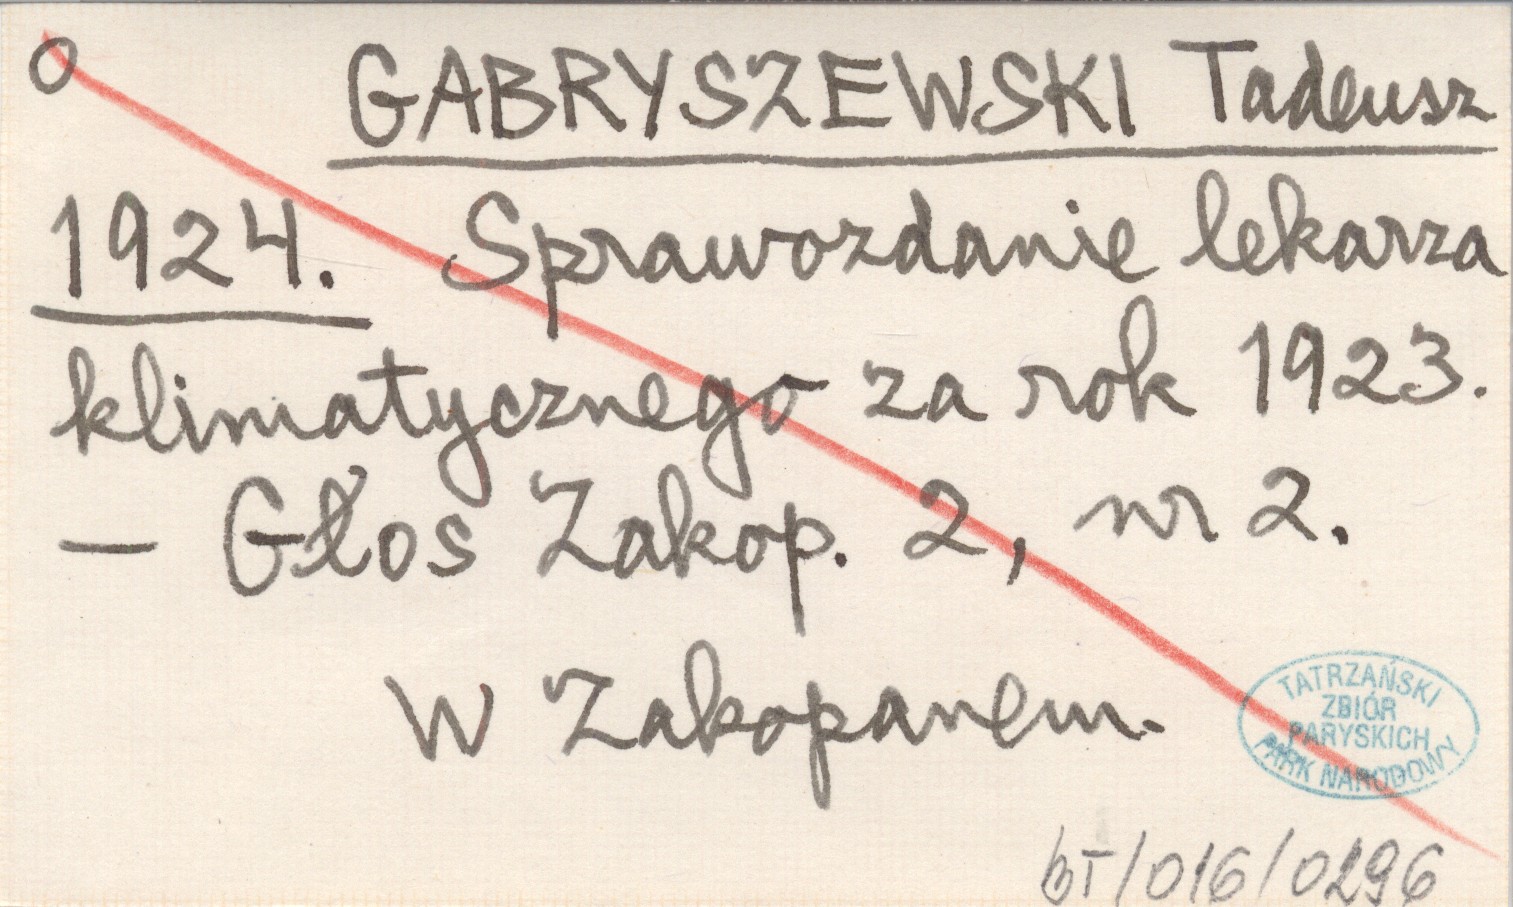 O GABRYSZEWSKI Tadeusz
1924. Sprawozdanie lekarza
klimatycznego za rok 1923.
— Głos Zakop. 2, nr 2.
W Zakopanem.
TATRZAŃSKI
ZBIÓR
PARYSKICH
PARK NARODOWY
BT/016/0296